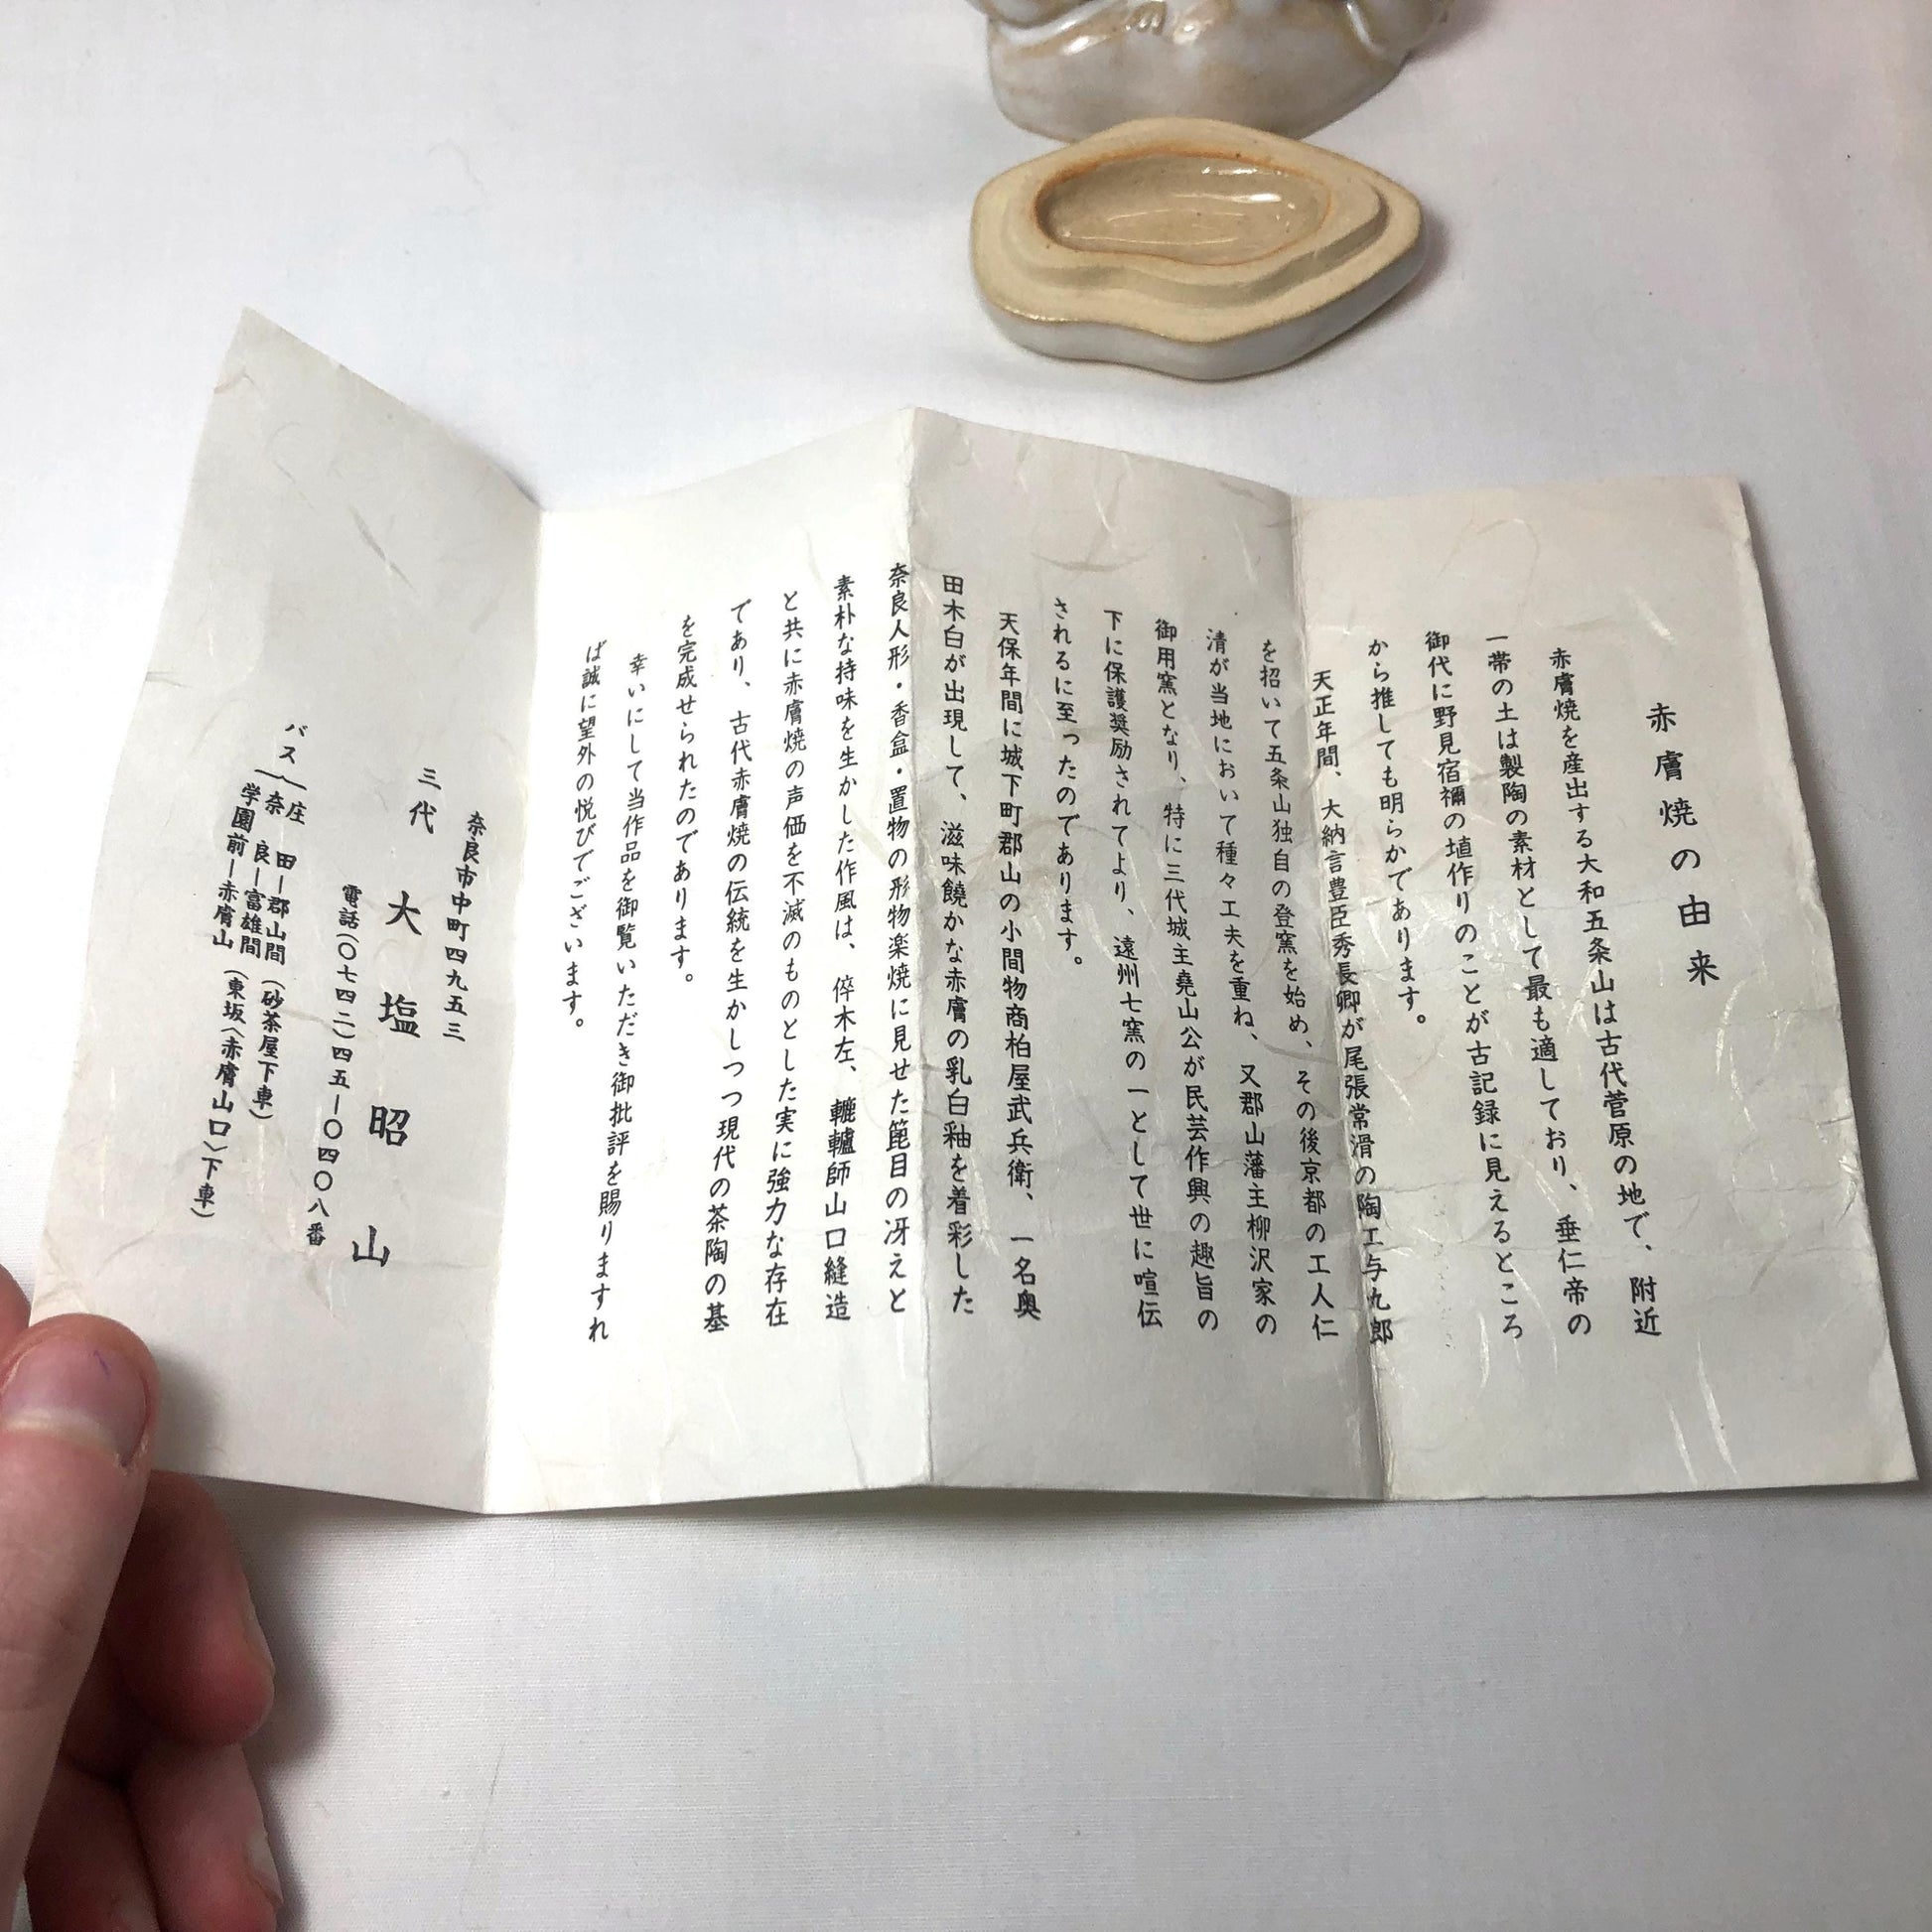 赤膚焼の由来
赤膚焼を産出する大和五条山は古代菅原の地で、附近
一帯の土は製陶の素材として最も適しており、垂仁帝の
御代に野見宿禰の埴作りのことが古記録に見えるところ
から推しても明らかであります。
天正年間、大納言豊臣秀長卿が尾張常滑の陶工与九郎
を招いて五条山独自の登窯を始め、その後京都の工人仁
清が当地において種々工夫を重ね、又郡山藩主柳沢家の
御用窯となり、特に三代城主堯山公が民芸作興の趣旨の
下に保護奨励されてより、遠州七窯の一として世に喧伝
されるに至ったのであります。
天保年間に城下町郡山の小間物商柏屋武兵衛、一名奥
田木白が出現して、滋味饒かな赤膚の乳白釉を着彩した
奈良人形・香盒・置物の形物楽焼に見せた箆目の冴えと
素朴な持味を生かした作風は、倅木左、轆轤師山口縫造
と共に赤膚焼の声価を不滅のものとした実に強力な存在
であり、古代赤膚焼の伝統を生かしつつ現代の茶陶の基
を完成せられたのであります。
幸いにして当作品を御覧いただき御批評を賜りますれ
ば誠に望外の悦びでございます。
奈良市中町四九五三
三代 大塩昭山
電話(〇七四二)四五―〇四〇八番
バス
庄田―郡山間(砂茶屋下車)
奈良―富雄間
学園前―赤膚山(東坂〈赤膚山口〉下車)